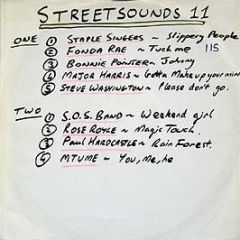 STREETSOUNDS 11
ONE ① STAPLE SINGERS ~ Slippery People
② FONDA RAE ~ Tuch me 115
③ BONNIE POINTER ~ Johnny
④ MAJOR HARRIS ~ Gotta Make up your mind
⑤ STEVE WASHINGTON ~ Please don't go.
TWO ① S.O.S. BAND ~ Weekend girl
② ROSE ROYCE ~ Magic Touch.
③ PAUL HARDCASTLE ~ Rain Forest.
④ MTUME ~ You, Me, he